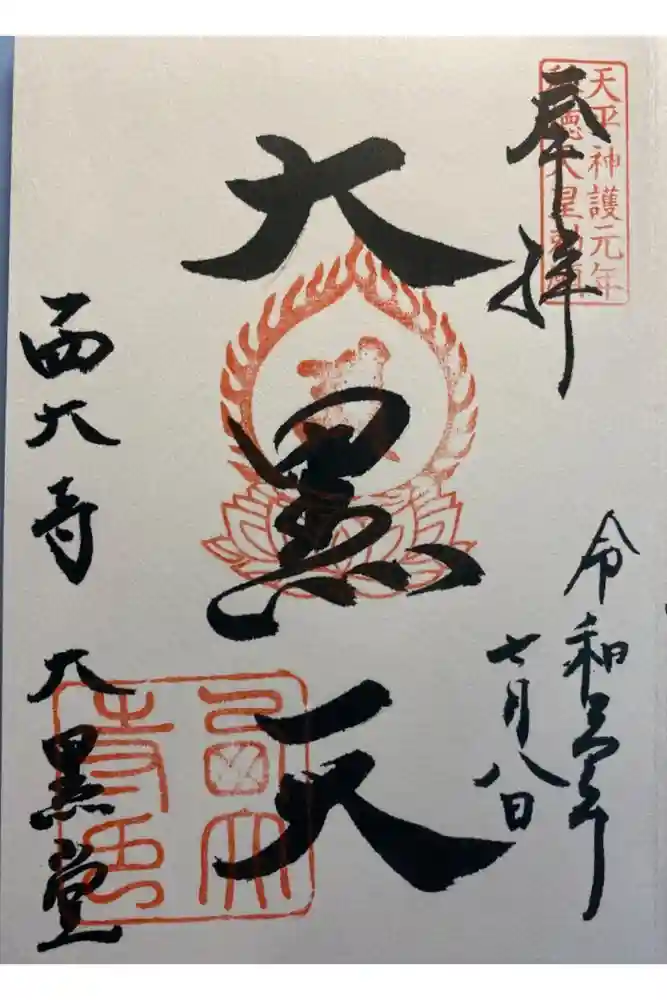 奉拝
天平神護元年
徳天皇勅願
令和 年
七月八日
大黒天
西大寺 大黒堂
西大
寺印